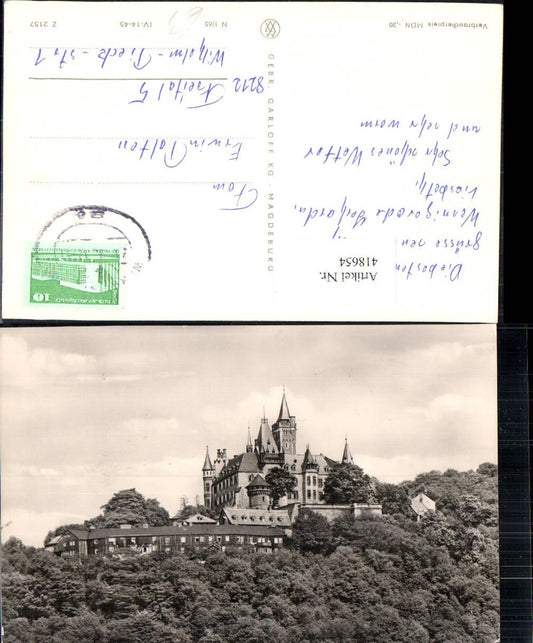 Die besten
grüsse von
Wernigerode
Sehr schönes Wetter
und sehr warm
Artikel Nr.
418654
GEBR. GARLOFF KG · MAGDEBURG
Fam
Erwin
8212 Freital 5
Wilhelm-Pieck-Str.
10
Verbraucherpreis MDN -,20
N 1/65
IV-14-45
Z 2157